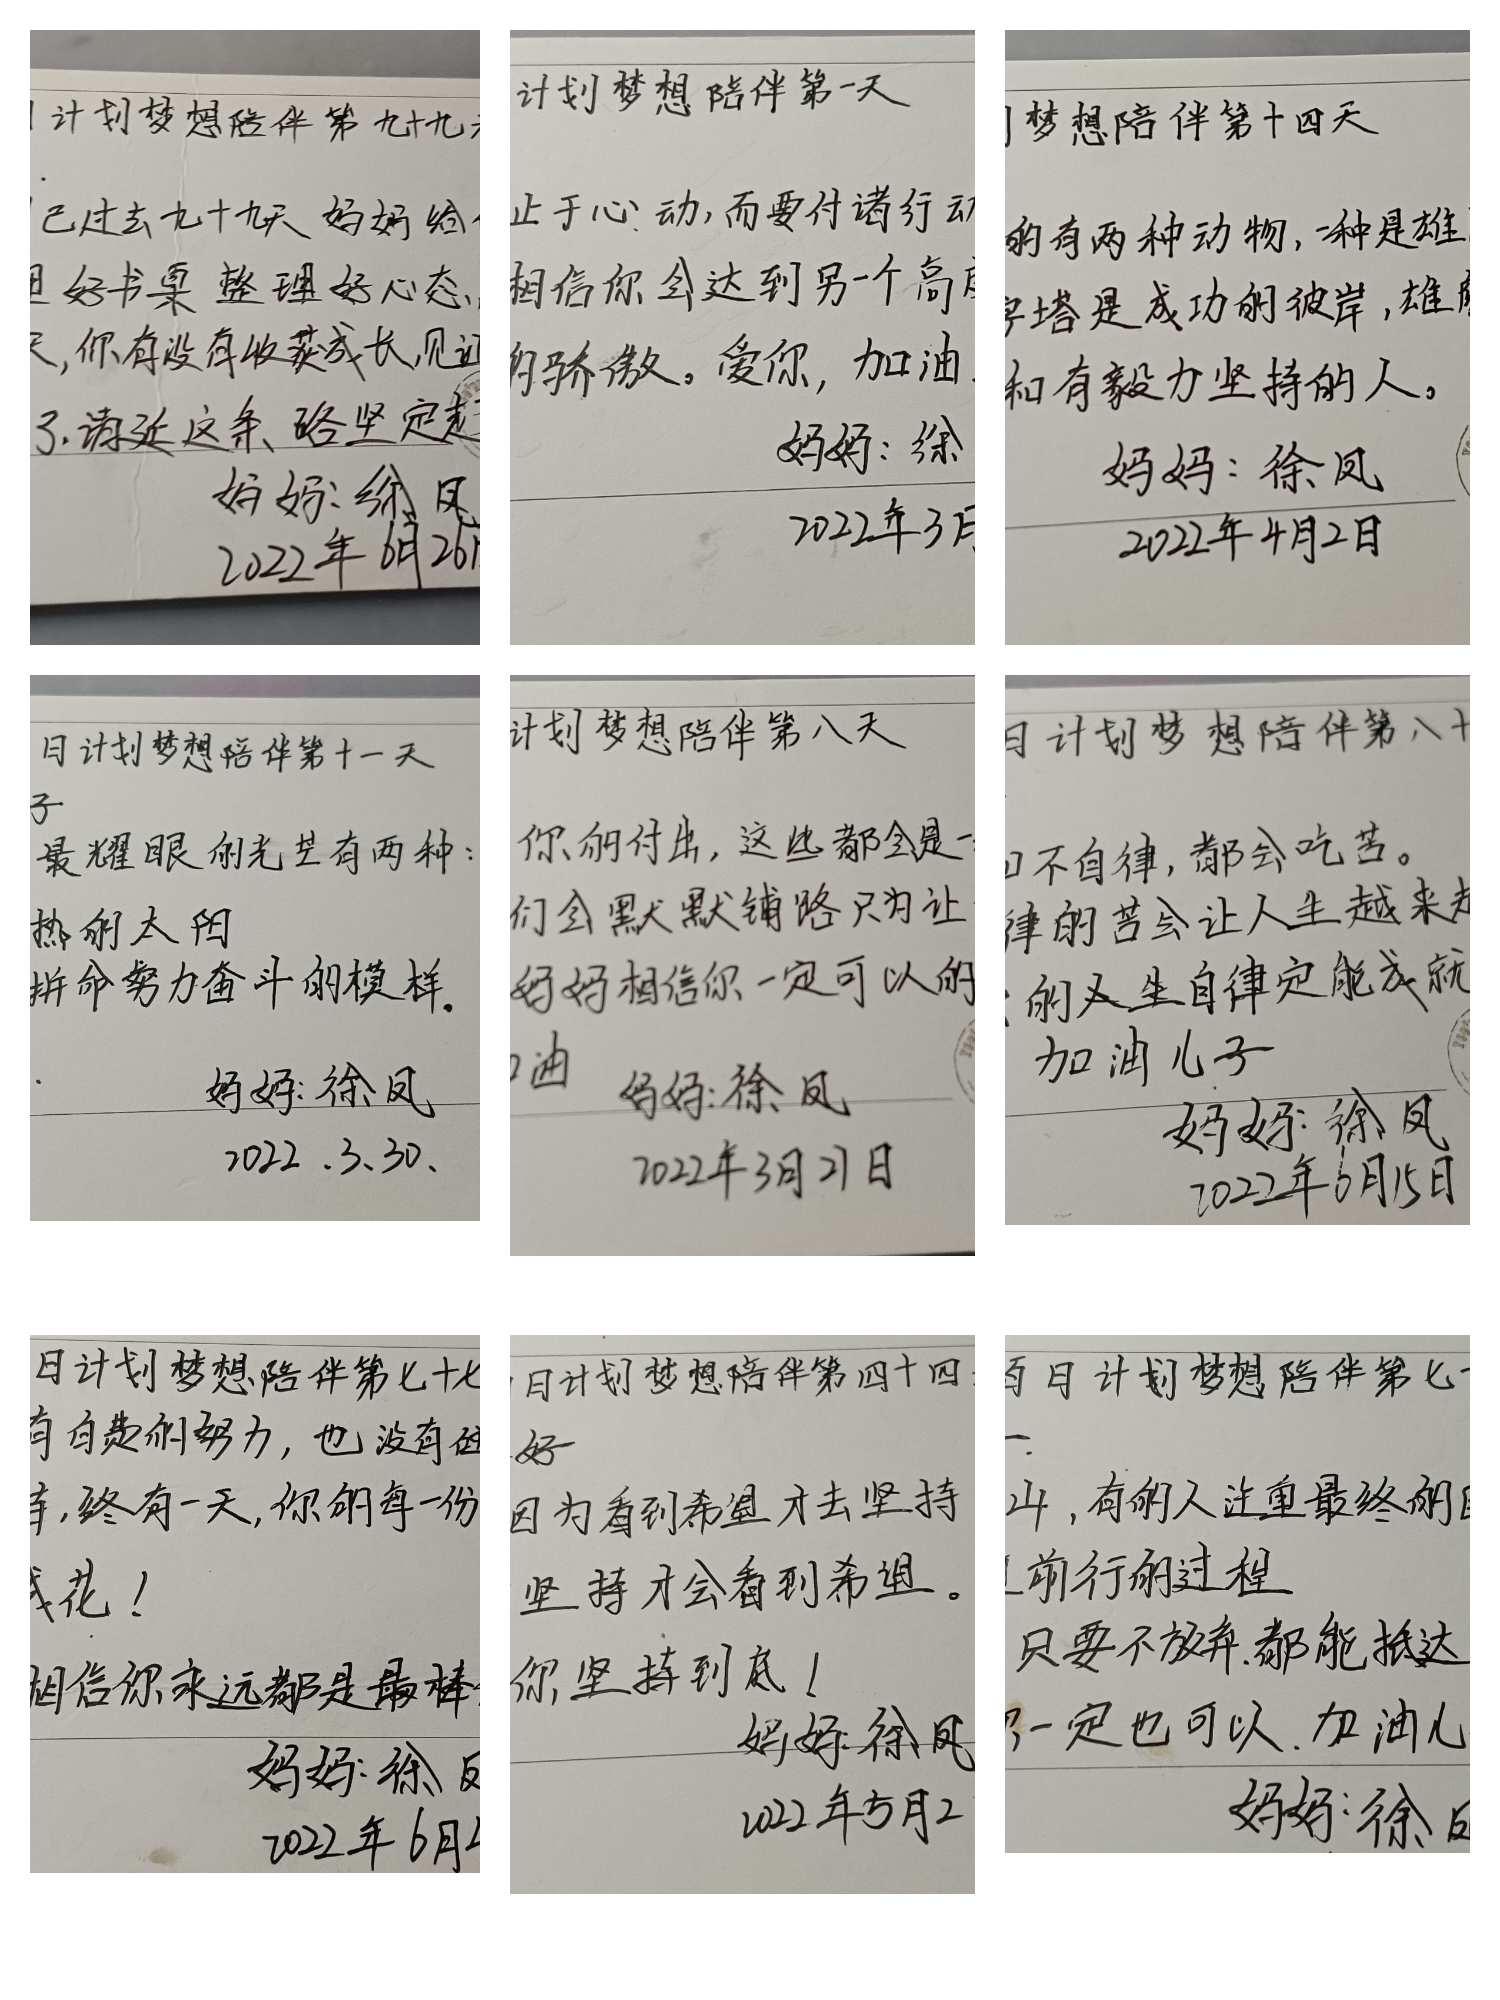 计划梦想陪伴第九十九
已过去九十九天 妈妈给
好书桌 整理好心态、
天,你有没有收获成长,见证
了.请延这条、路坚定走
妈妈:徐凤
2022年6月26
计划梦想陪伴第一天
止于心动,而要付诸行动
相信你会达到另一个高度
的骄傲。爱你,加油
妈妈:徐
2022年3月
梦想陪伴第十四天
的有两种动物,一种是雄
字塔是成功的彼岸,雄鹰
和有毅力坚持的人。
妈妈:徐凤
2022年4月2日
日计划梦想陪伴第十一天
子
最耀眼的光芒有两种:
热的太阳
拼命努力奋斗的模样.
妈妈:徐凤
2022.3.30、
计划梦想陪伴第八天
你的付出,这些都会是一
们会默默铺路只为让
妈妈相信你一定可以的
油
妈妈:徐凤
2022年3月21日
日计划梦想陪伴第八十
不自律,都会吃苦。
律的苦会让人生越来越
的人生自律定能成就
加油儿子
妈妈:徐凤
2022年6月15日
日计划梦想陪伴第七十七
有白费的努力,也没有
终有一天,你的每一份
成花!
相信你永远都是最棒
妈妈:徐
2022年6月
日计划梦想陪伴第四十四
好
因为看到希望才去坚持
坚持才会看到希望。
你坚持到底!
妈妈:徐凤
2022年5月2
百日计划梦想陪伴第七十
斗,有的人注重最终的目
前行的过程
只要不放弃.都能抵达
一定也可以.加油儿
妈妈:徐